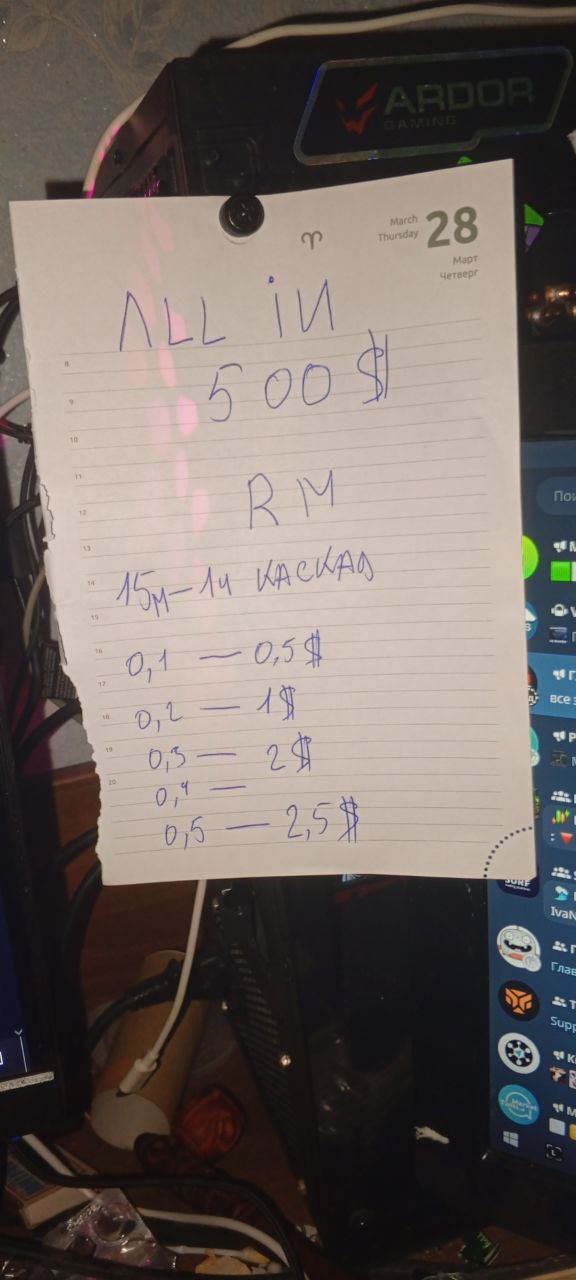 ARDOR
GAMING
March
Thursday
28
Март
Четверг
ALL IN
500$
RM
15м-1ч КАСКАД
0,1 — 0,5$
0,2 — 1$
0,3 — 2$
0,4 —
0,5 — 2,5$
8
9
10
11
12
13
14
15
16
17
18
19
20
Пои
все з
SURF
IvaN
Глав
Supp
Market